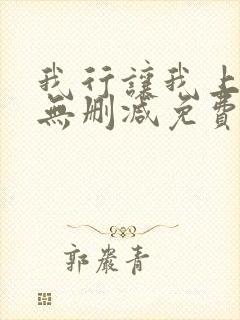 我行讓我上
無刪減免費
郭嚴青